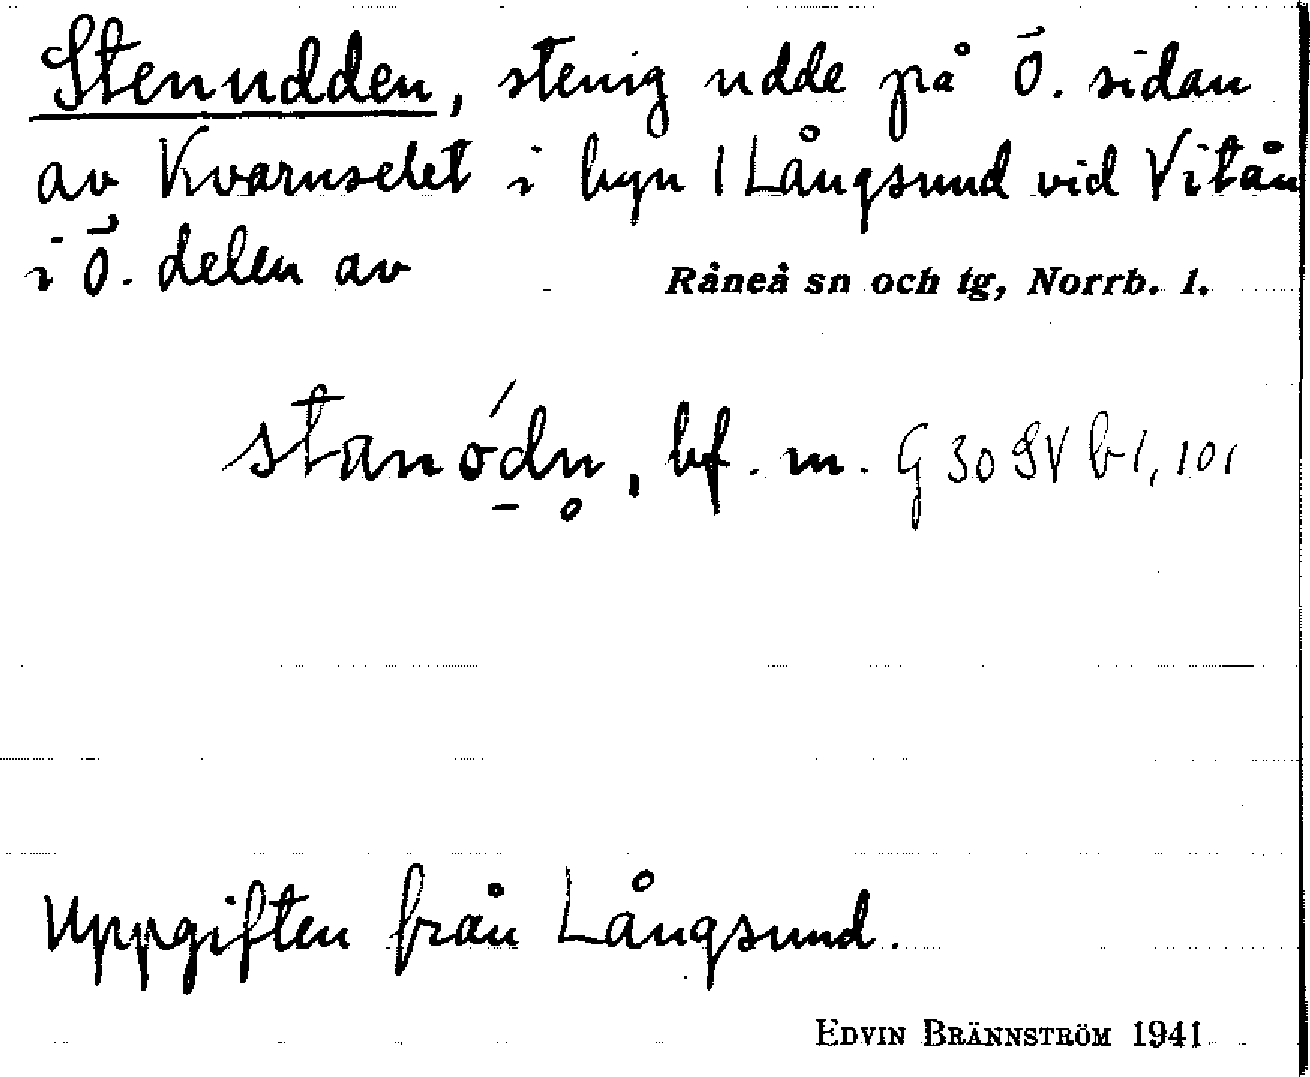 Stenudden, stenig udde på Ö. sidan
av Kvarnselet i byn Långsund vid Vitån
i Ö. delen av Råneå sn och tg, Norrb. l.
stanódn̥, bf. m. G 30 SV b1, 101
Uppgiften från Långsund.
EDVIN BRÄNNSTRÖM 1941